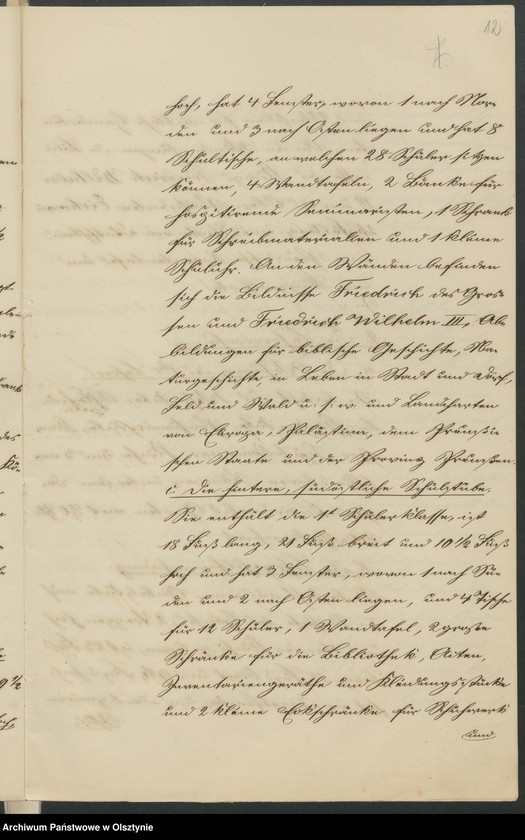 12
hoch, hat 4 Fenster, wovon 1 nach Nor-
den und 3 nach Osten liegen und hat 8
Schultische, an welchen 28 Schüler sitzen
können, 4 Wandtafeln, 2 Bänke für
hospitirende Seminaristen, 1 Schrank
für Schreibmaterialien und 1 kleine
Schuluhr. An den Wänden befinden
sich die Bildnisse Friedrich des Gros-
sen und Friedrich Wilhelm III, Ab-
bildungen für biblische Geschichte, Na-
turgeschichte, in Leben in Stadt und Dorf,
Feld und Wald u. s. w. und Landcharten
von Europa, Palästina, dem Preußi-
schen Staate und der Provinz Preußen.
c. Die hintere, südöstliche Schulstube.
Sie enthält die 1te Schülerklasse, ist
18 Fuß lang, 21 Fuß breit und 10 1/2 Fuß
hoch und hat 3 Fenster, wovon 1 nach Sü-
den und 2 nach Osten liegen, und 4 Tische
für 12 Schüler, 1 Wandtafel, 2 große
Schränke für die Bibliothek, Acten,
Inventariengeräthe und Kleidungsstücke
und 2 kleine Eckschränke für Schuhwerk
und
Archiwum Państwowe w Olsztynie